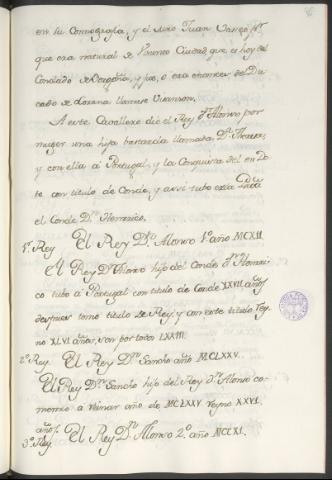 en su Comografia, y el otro Juan Vaseo
que era natural de Ciudad, que es hoy del
Condado de Borgoña, y que, o era entonces del Du
cado de Lorena llamase
A este Cavallero dió el Rey Dn Alonso por
muger una hija bastarda llamada Da Theresa,
y con ella á Portugal, y la Conquista del en Do
te con titulo de Conde, y assi tubo esta
el Conde Dn Henrrico.
1º. Rey El Rey Dn. Alonso 1º. año MCXII.
El Rey Dn Alonso hijo del Conde Dn Henrri
co tubo á Portugal con titulo de Conde XXVII años
despues tomo titulo de Rey, y con este titulo Rey
no XLVI años, son por todos LXXIII.
2º. Rey. El Rey Dn Sancho año MCLXXV.
El Rey Dn Sancho hijo del Rey dn Alonso co
menzo á Reinar año de MCLXXV Reyno XXVI.
años.
3º. Rey. El Rey Dn Alonso 2º. año MCCXI.